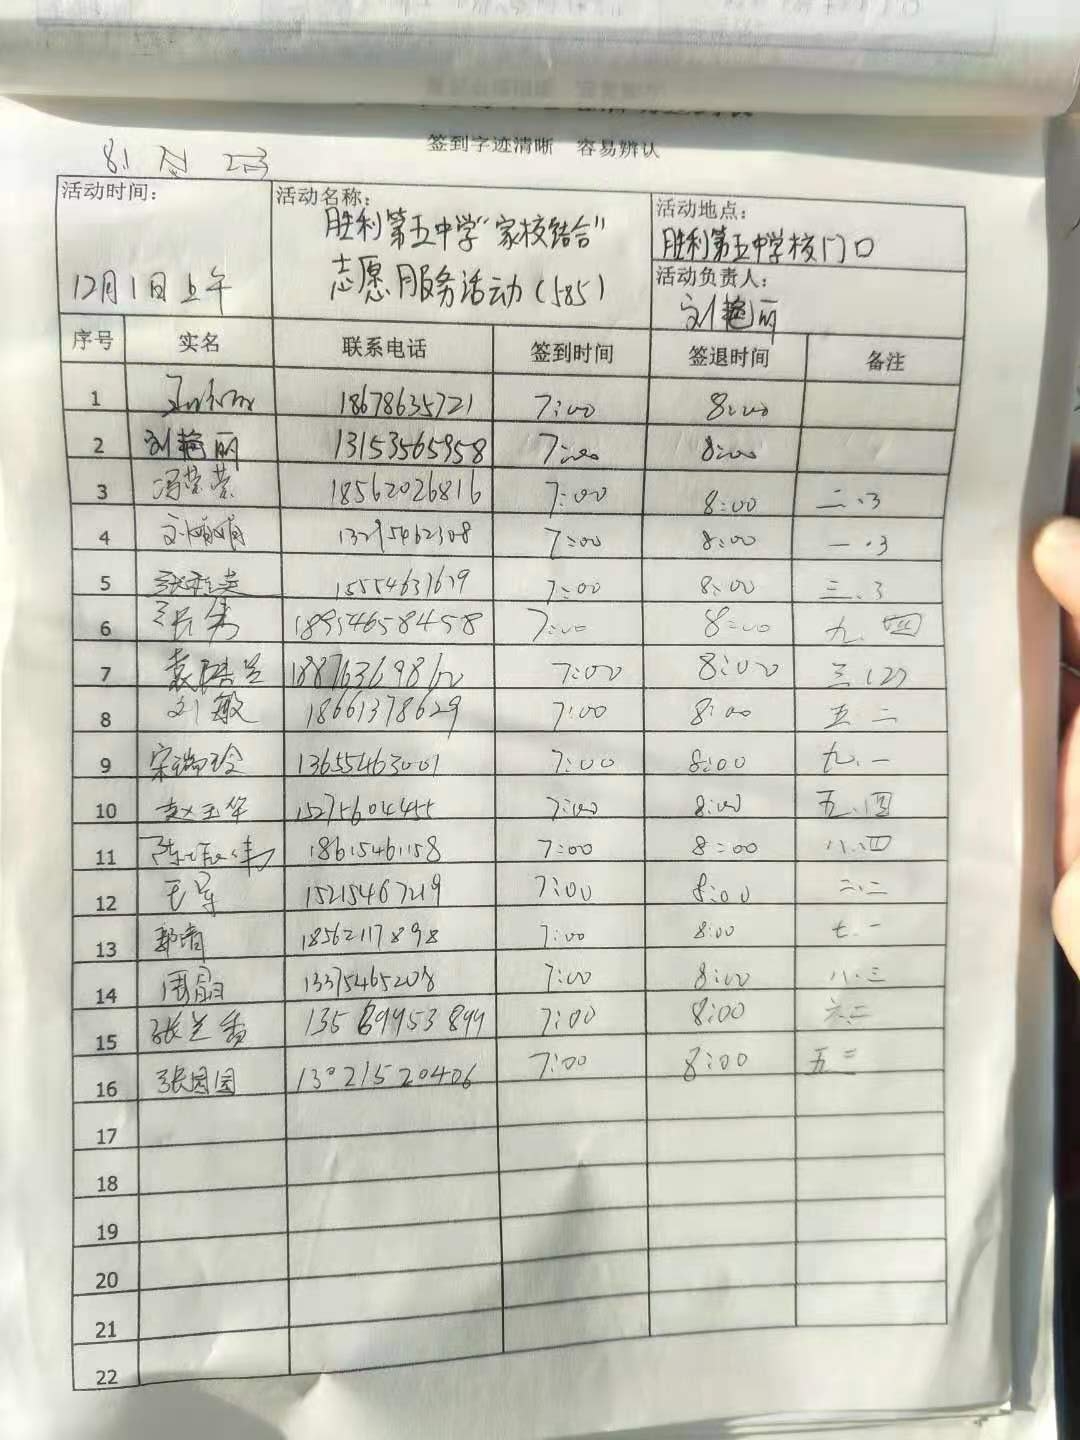 签到字迹清晰 容易辨认
活动时间： 12月1日上午
活动名称： 胜利第五中学“家校结合”
志愿服务活动（585）
活动地点：
胜利第五中学校门口
活动负责人：
刘艳丽
序号 实名 联系电话 签到时间 签退时间 备注
1 18678635721 7:00 8:00
2 刘艳丽 13153565958 7:00 8:00
3 冯莹莹 18562026816 7:00 8:00 二.3
4 7:00 8:00 一.3
5 15554631679 7:00 8:00 三.3
6 18954658458 7:00 8:00 九.四
7 7:00 8:00 三(2)
8 刘敏 18661378629 7:00 8:00 五.二
9 宋瑞玲 13655463001 7:00 8:00 九.一
10 赵玉华 15275604455 7:00 8:00 五.四
11 18615461158 7:00 8:00 八.四
12 15215467219 7:00 8:00 二.二
13 郭靖 18562117898 7:00 8:00 七.一
14 13375465208 7:00 8:00 八.三
15 张兰香 7:00 8:00 六.二
16 张圆圆 13021520406 7:00 8:00 五三
17
18
19
20
21
22